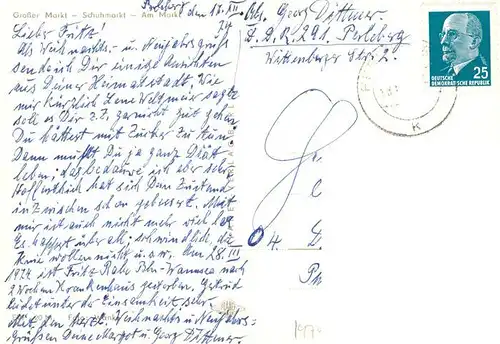 Großer Markt – Schuhmarkt – Am Markt
Perleberg, den 17. XII.
74
Lieber Fritz!
Als Weihnachts- und Neujahrsgruß
sende ich Dir einige Ansichten
aus Deiner Heimatstadt. Wie
mir kürzlich Lene Weltmeier sagte
soll es Dir z. Z. garnicht gut gehen
Du hättest mit Zucker zu tun
Dann mußt Du ja ganz Diät
leben; das bedaure ich aber sehr
Hoffentlich hat sich Dein Zustand
inzwischen schon gebessert. Mit
mir ist auch nicht mehr viel los
Es happert überall; schwindlich, die
Knie wollen nicht u.s.w. Am 28. III
1974 ist Fritz Bln-Wannsee nach
2 Wochen Krankenhaus gestorben. Gertrud
leidet unter der Einsamkeit sehr.
Mit den herzl. Weihnachts u Neujahrs-
Grüßen Deine u. Georg Dittmer.
Abs. Georg Dittmer
D.D.R. 291. Perleberg
Wittenberger Str. 2.
DEUTSCHE
DEMOKRATISCHE REPUBLIK
25
K
4.